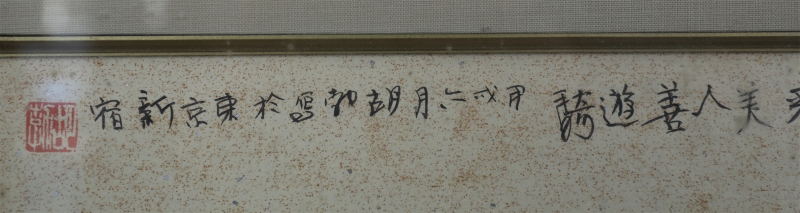 美人善遊騎 甲戌六月胡勃寫於東京新宿
胡勃